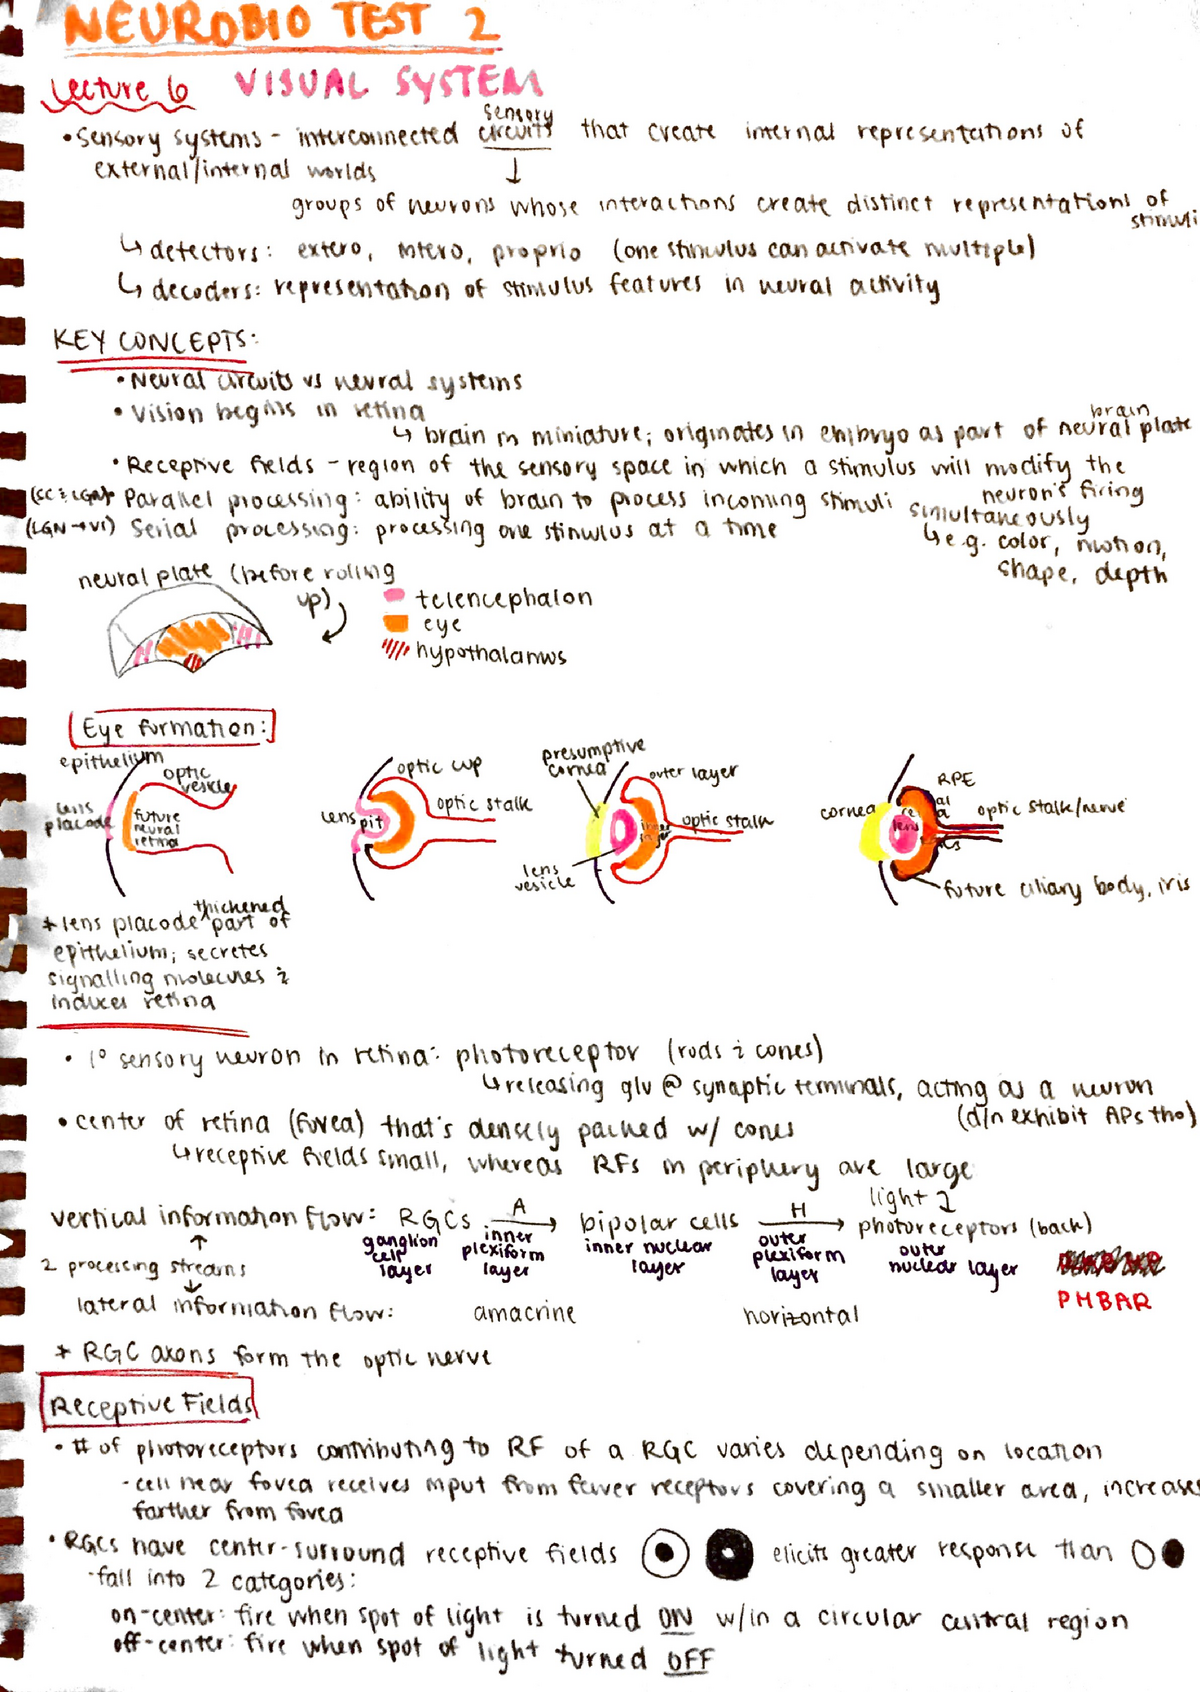 NEUROBIO TEST 2
Lecture 6 VISUAL SYSTEM
• Sensory systems - interconnected sensory circuits that create internal representations of
external/internal worlds ↓
groups of neurons whose interactions create distinct representations of stimuli
↳ detectors: extero, intero, proprio (one stimulus can activate multiple)
↳ decoders: representation of stimulus features in neural activity
KEY CONCEPTS:
• Neural circuits vs neural systems
• Vision begins in retina
↳ brain in miniature; originates in embryo as part of brain neural plate
• Receptive fields - region of the sensory space in which a stimulus will modify the neuron's firing
(SC & LGN)* Parallel processing: ability of brain to process incoming stimuli simultaneously
↳ e.g. color, motion, shape, depth
(LGN→V1) Serial processing: processing one stimulus at a time
neural plate (before rolling up)
telencephalon
eye
hypothalamus
Eye formation:
epithelium
optic vesicle
lens placode
future neural retina
optic cup
optic stalk
lens pit
presumptive cornea
outer layer
inner layer
optic stalk
lens vesicle
RPE
cornea
lens
optic stalk/nerve
future ciliary body, iris
* lens placode thickened part of
epithelium; secretes
signalling molecules &
induces retina
• 1° sensory neuron in retina: photoreceptor (rods & cones)
↳ releasing glu @ synaptic terminals, acting as a neuron
(d/n exhibit APs tho)
• center of retina (fovea) that's densely packed w/ cones
↳ receptive fields small, whereas RFs in periphery are large
light
vertical information flow: RGCs A → bipolar cells H → photoreceptors (back)
ganglion cell layer inner plexiform layer inner nuclear layer outer plexiform layer outer nuclear layer
↑
2 processing streams
↓
PHBAR
lateral information flow: amacrine horizontal
* RGC axons form the optic nerve
Receptive Fields
• # of photoreceptors contributing to RF of a RGC varies depending on location
- cell near fovea receives input from fewer receptors covering a smaller area, increases
farther from fovea
• RGCs have center-surround receptive fields elicits greater response than
- fall into 2 categories:
on-center: fire when spot of light is turned ON w/in a circular central region
off-center: fire when spot of light turned OFF